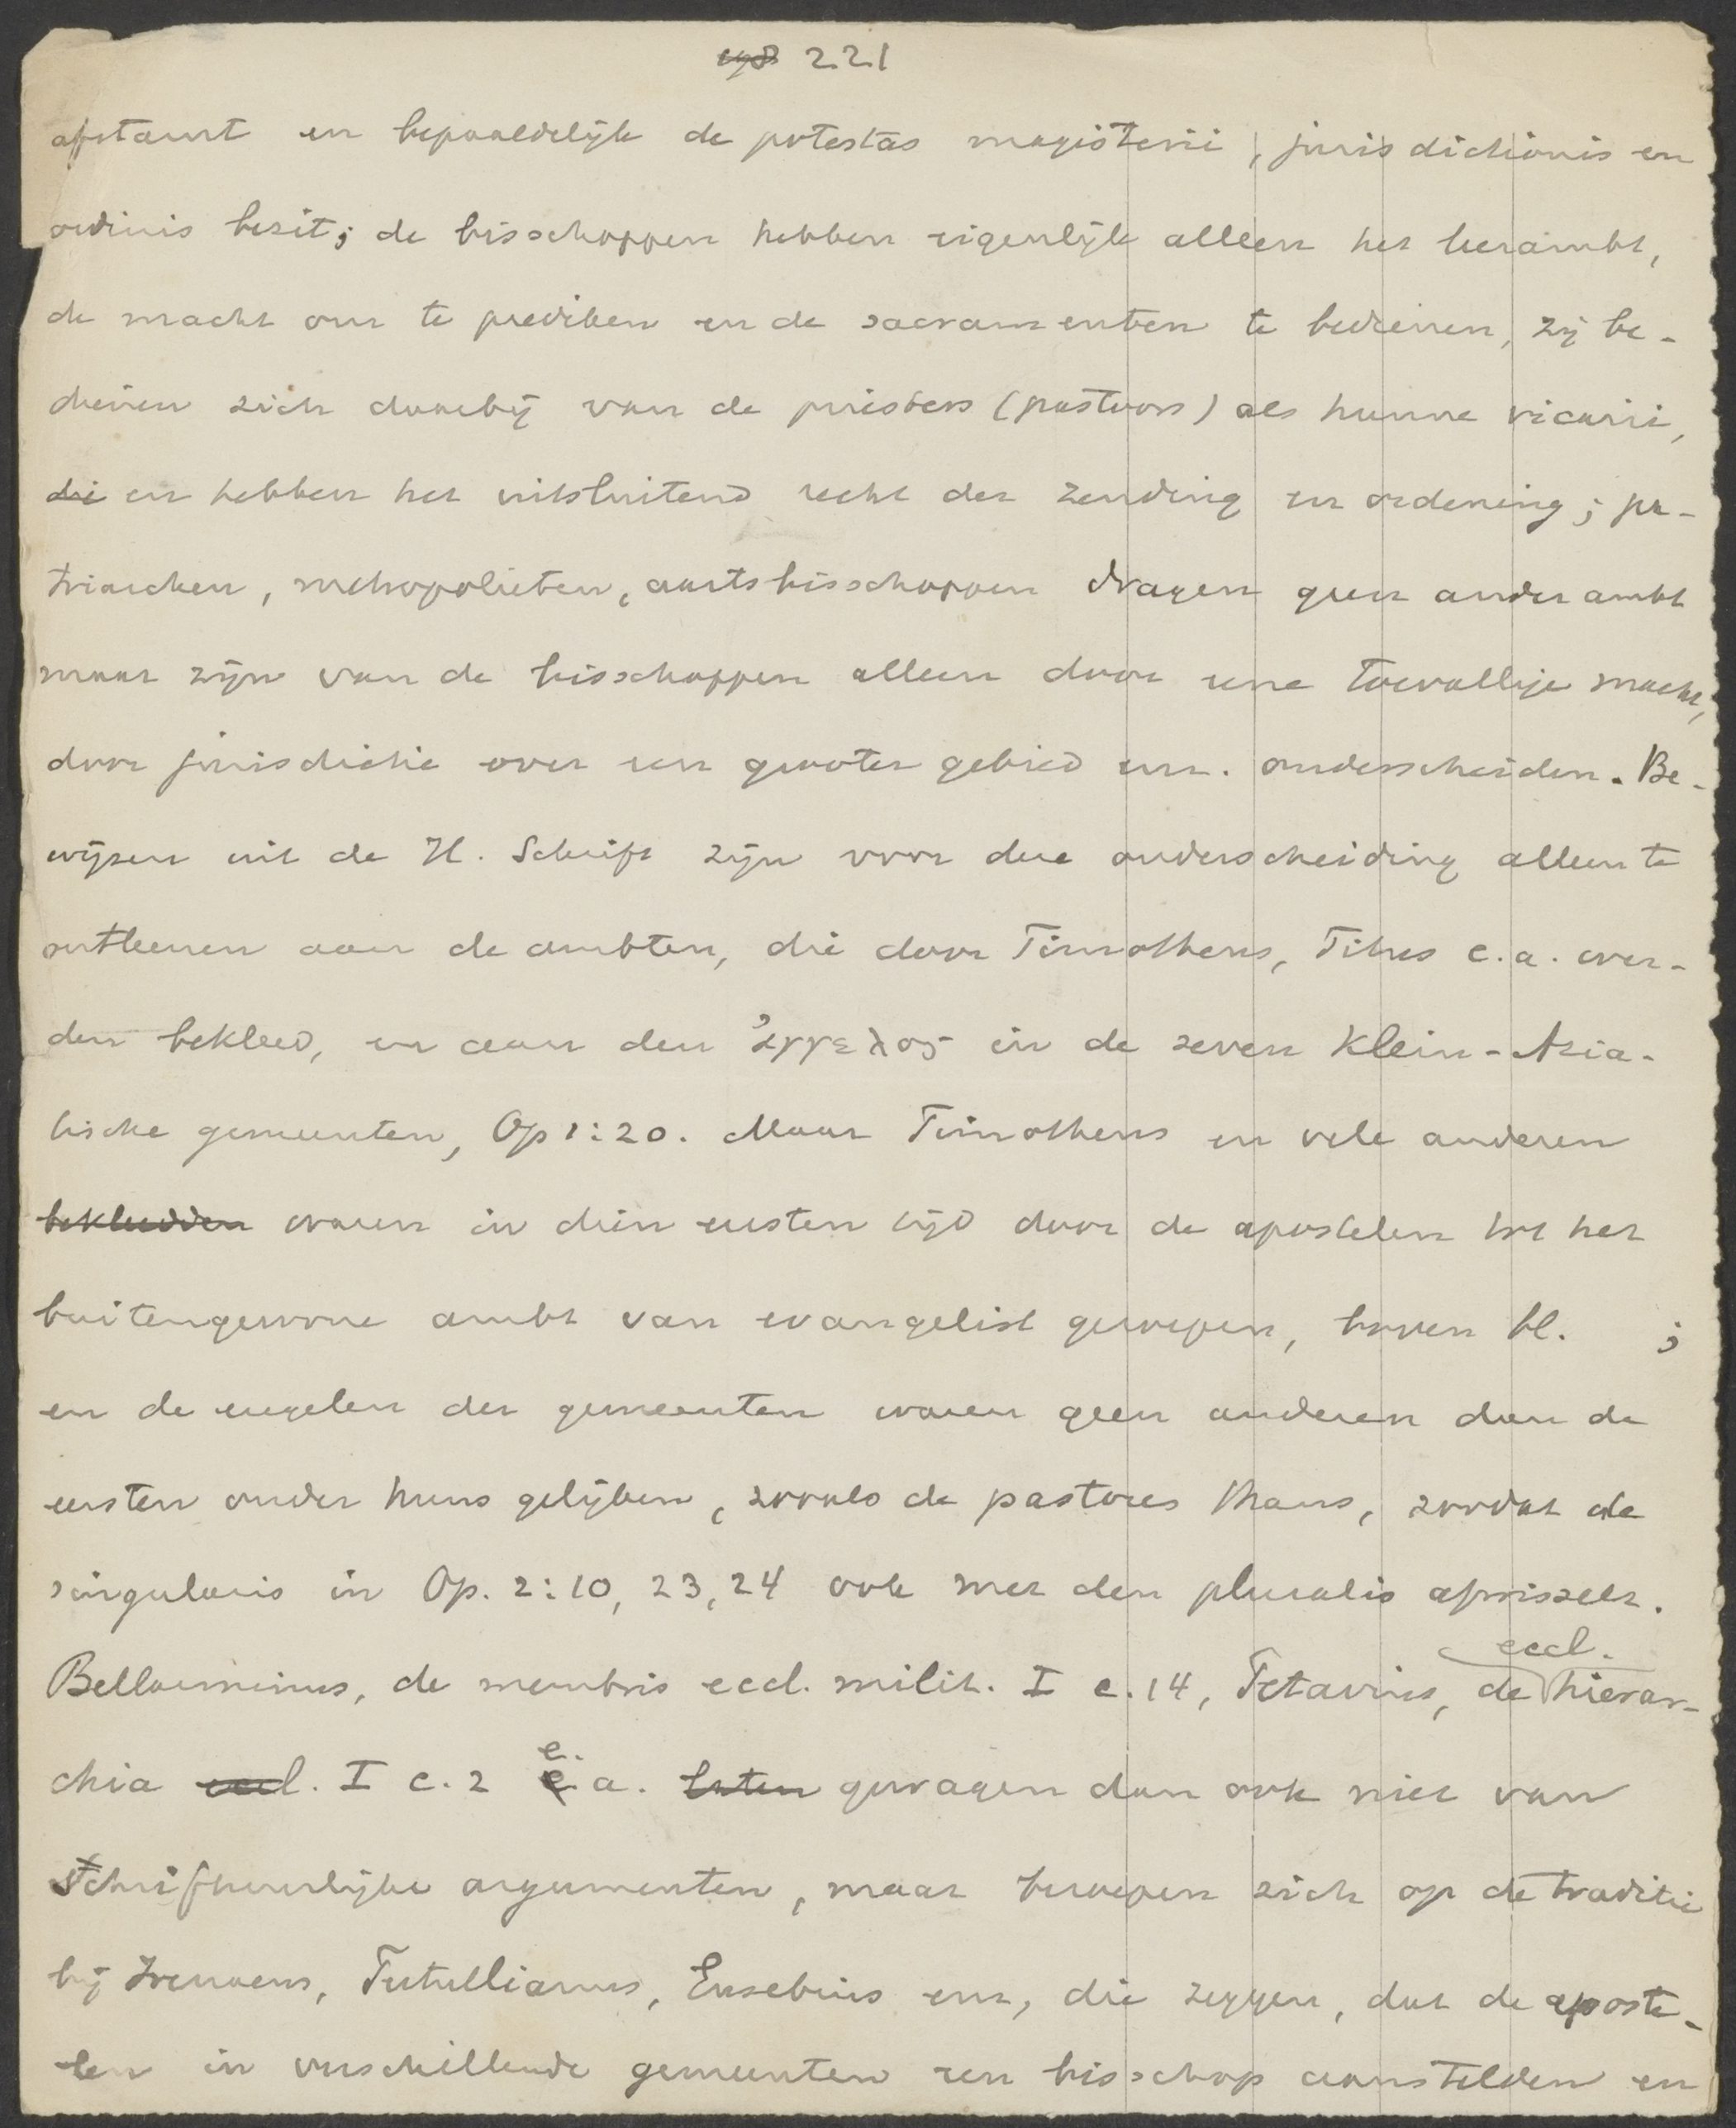 198 221
afstamt en bepaaldelijk de potestas magisterii, jurisdictionis en
ordinis bezit; de bisschoppen hebben eigenlijk alleen het leerambt,
de macht om te prediken en de sacramenten te bedienen, zij be-
dienen zich daarbij van de priesters (pastoors) als hunne vicarii,
die en hebben het uitsluitend recht der zending en ordening; pa-
triarchen, metropolieten, aartsbisschoppen dragen geen ander ambt
maar zijn van de bisschoppen alleen door eene toevallige macht,
door jurisdictie over een grooter gebied enz. onderscheiden. Be-
wijzen uit de H. Schrift zijn voor deze onderscheiding alleen te
ontleenen aan de ambten, die door Timotheus, Titus e.a. wer-
den bekleed, en aan den ἀγγελος in de zeven Klein-Azia-
tische gemeenten, Op 1:20. Maar Timotheus en vele anderen
bekleedden waren in dien eersten tijd door de apostelen tot het
buitengewone ambt van evangelist geroepen, boven bl. ;
en de engelen der gemeenten waren geen anderen dan de
eersten onder huns gelijken, zooals de pastores thans, zoodat de
singularis in Op. 2:10, 23, 24 ook met den pluralis afwisselt.
Bellarminus, de membris eccl. milit. I c. 14, Petavius, de eccl. hierar-
chia eccl. I c. 2 e. a. laten gewagen dan ook niet van
Schriftuurlijke argumenten, maar beroepen zich op de traditie
bij Irenaeus, Tertullianus, Eusebius enz, die zeggen, dat de aposte-
len in verschillende gemeenten een bisschop aanstelden en